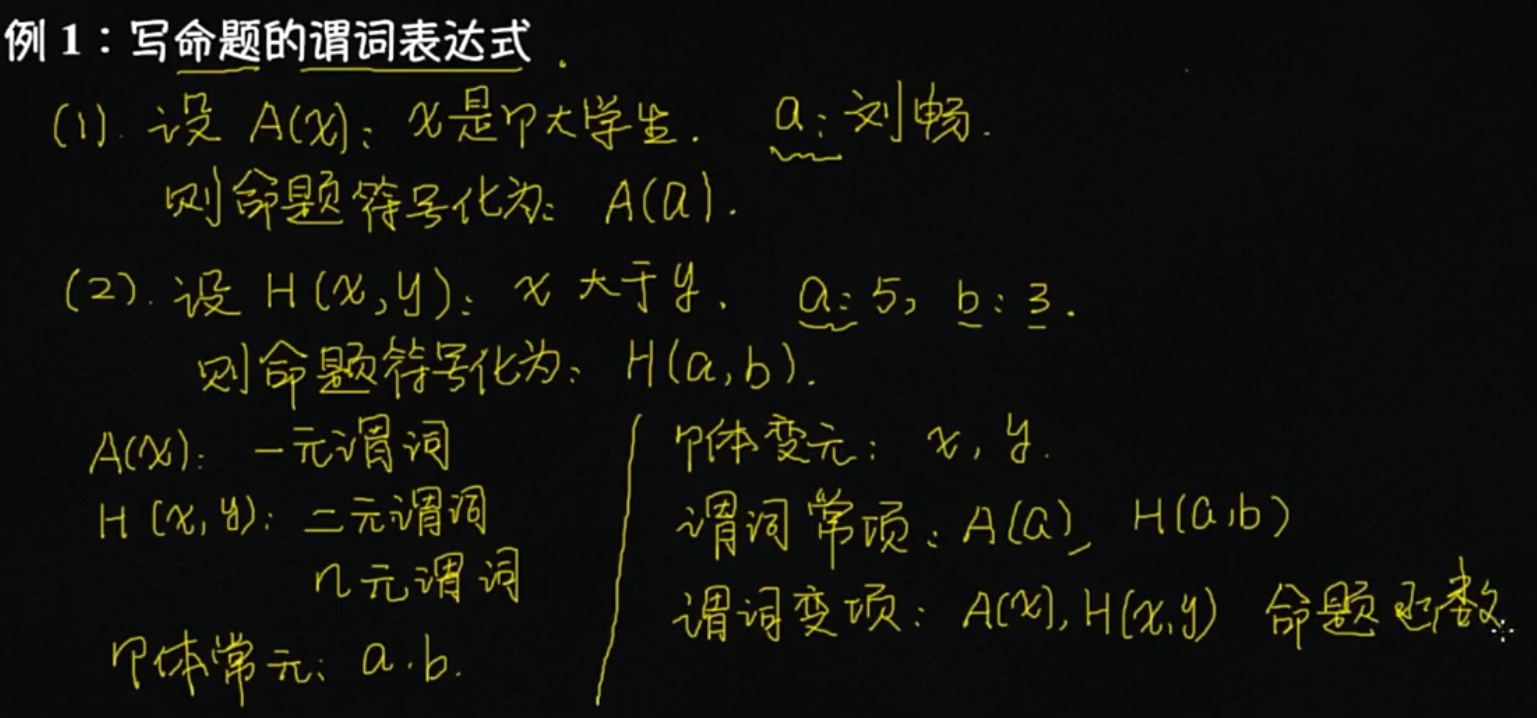 例 1：写命题的谓词表达式
(1). 设 A(x): x是个大学生. a: 刘畅.
则命题符号化为: A(a).
(2). 设 H(x,y): x 大于 y. a: 5, b: 3.
则命题符号化为: H(a,b).
A(x): 一元谓词
H(x,y): 二元谓词
n元谓词
个体常元: a.b.
个体变元: x, y.
谓词常项: A(a), H(a,b)
谓词变项: A(x), H(x,y) 命题函数